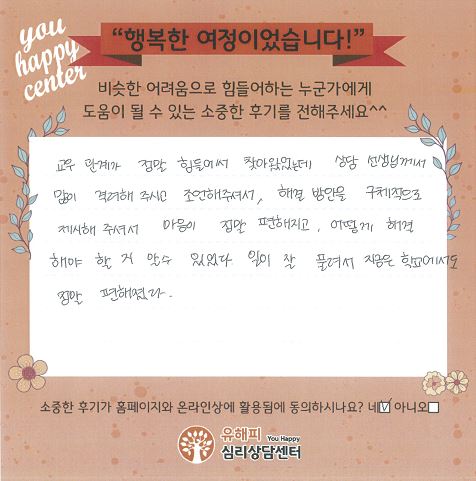 you
happy
center
“행복한 여정이었습니다!”
비슷한 어려움으로 힘들어하는 누군가에게
도움이 될 수 있는 소중한 후기를 전해주세요^^
교우 관계가 정말 힘들어서 찾아왔었는데 상담 선생님께서
많이 격려해 주시고 조언해주셔서, 해결 방안을 구체적으로
제시해 주셔서 마음이 정말 편해지고, 어떻게 해결
해야 할 거 알수 있었다 일이 잘 풀려서 지금은 학교에서도
정말 편해졌다.
소중한 후기가 홈페이지와 온라인상에 활용됨에 동의하시나요? 네☑ 아니오☐
유해피 You Happy
심리상담센터